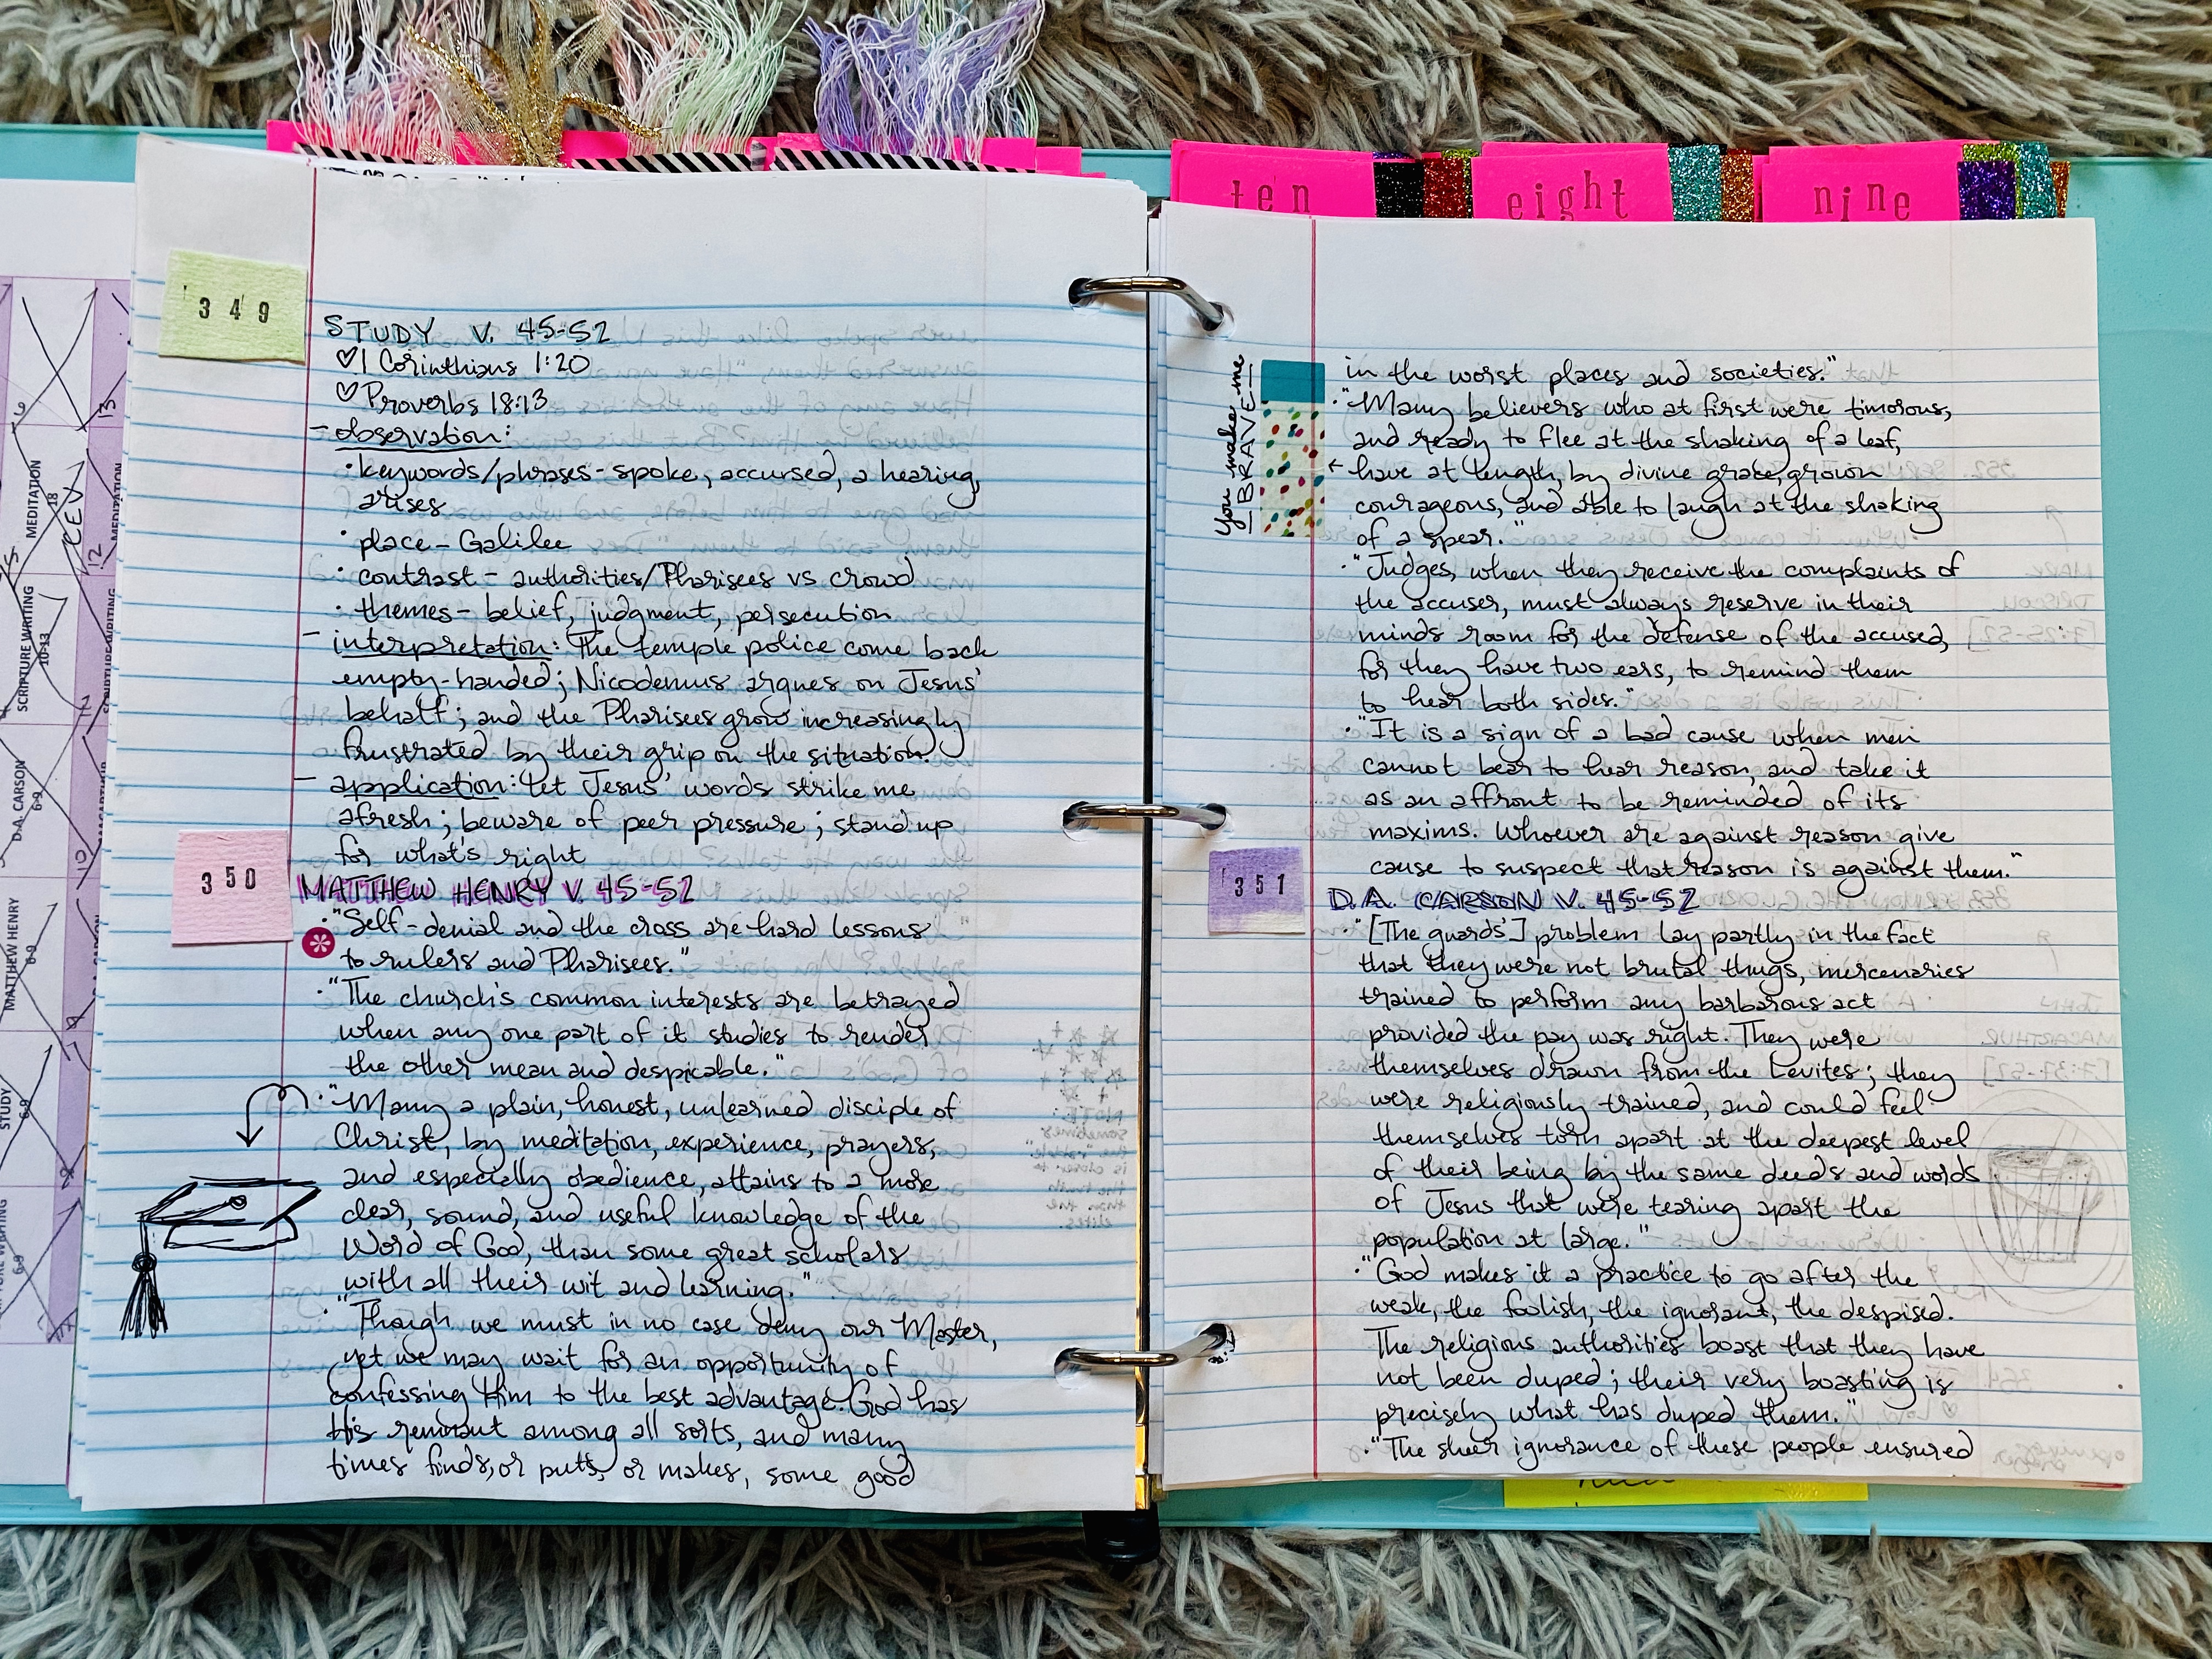 ten
eight
nine
349
STUDY V. 45-52
♡ 1 Corinthians 1:20
♡ Proverbs 18:13
- observation:
· keywords/phrases - spoke, accursed, a hearing,
arises
· place - Galilee
· contrast - authorities/Pharisees vs crowd
· themes - belief, judgment, persecution
- interpretation: The temple police come back
empty-handed; Nicodemus argues on Jesus'
behalf; and the Pharisees grow increasingly
frustrated by their grip on the situation.
- application: Let Jesus' words strike me
afresh; beware of peer pressure; stand up
for what's right
350
MATTHEW HENRY V. 45-52
· "Self-denial and the cross are hard lessons
to rulers and Pharisees."
· "The church's common interests are betrayed
when any one part of it studies to render
the other mean and despicable."
· "Many a plain, honest, unlearned disciple of
Christ, by meditation, experience, prayers,
and especially obedience, attains to a more
clear, sound, and useful knowledge of the
Word of God, than some great scholars
with all their wit and learning."
· "Though we must in no case deny our Master,
yet we may wait for an opportunity of
confessing Him to the best advantage. God has
His remnant among all sorts, and many
times finds, or puts, or makes, some good
in the worst places and societies."
· "Many believers who at first were timorous,
and ready to flee at the shaking of a leaf,
have at length, by divine grace, grown
courageous, and able to laugh at the shaking
of a spear."
You make me
BRAVE
· "Judges, when they receive the complaints of
the accuser, must always reserve in their
minds room for the defense of the accused,
for they have two ears, to remind them
to hear both sides."
· "It is a sign of a bad cause when men
cannot bear to hear reason, and take it
as an affront to be reminded of its
maxims. Whoever are against reason give
cause to suspect that reason is against them."
351
D.A. CARSON V. 45-52
· "[The guards'] problem lay partly in the fact
that they were not brutal thugs, mercenaries
trained to perform any barbarous act
provided the pay was right. They were
themselves drawn from the Levites; they
were religiously trained, and could feel
themselves torn apart at the deepest level
of their being by the same deeds and words
of Jesus that were tearing apart the
population at large."
· "God makes it a practice to go after the
weak, the foolish, the ignorant, the despised.
The religious authorities boast that they have
not been duped; their very boasting is
precisely what has duped them."
· "The sheer ignorance of these people ensured
MEDITATION
18
CEV
12
13
MEDITATION
SCRIPTURE WRITING
10-33
D.A. CARSON
6-9
10
MATTHEW HENRY
6-9
9
STUDY
6-9
8
6-9